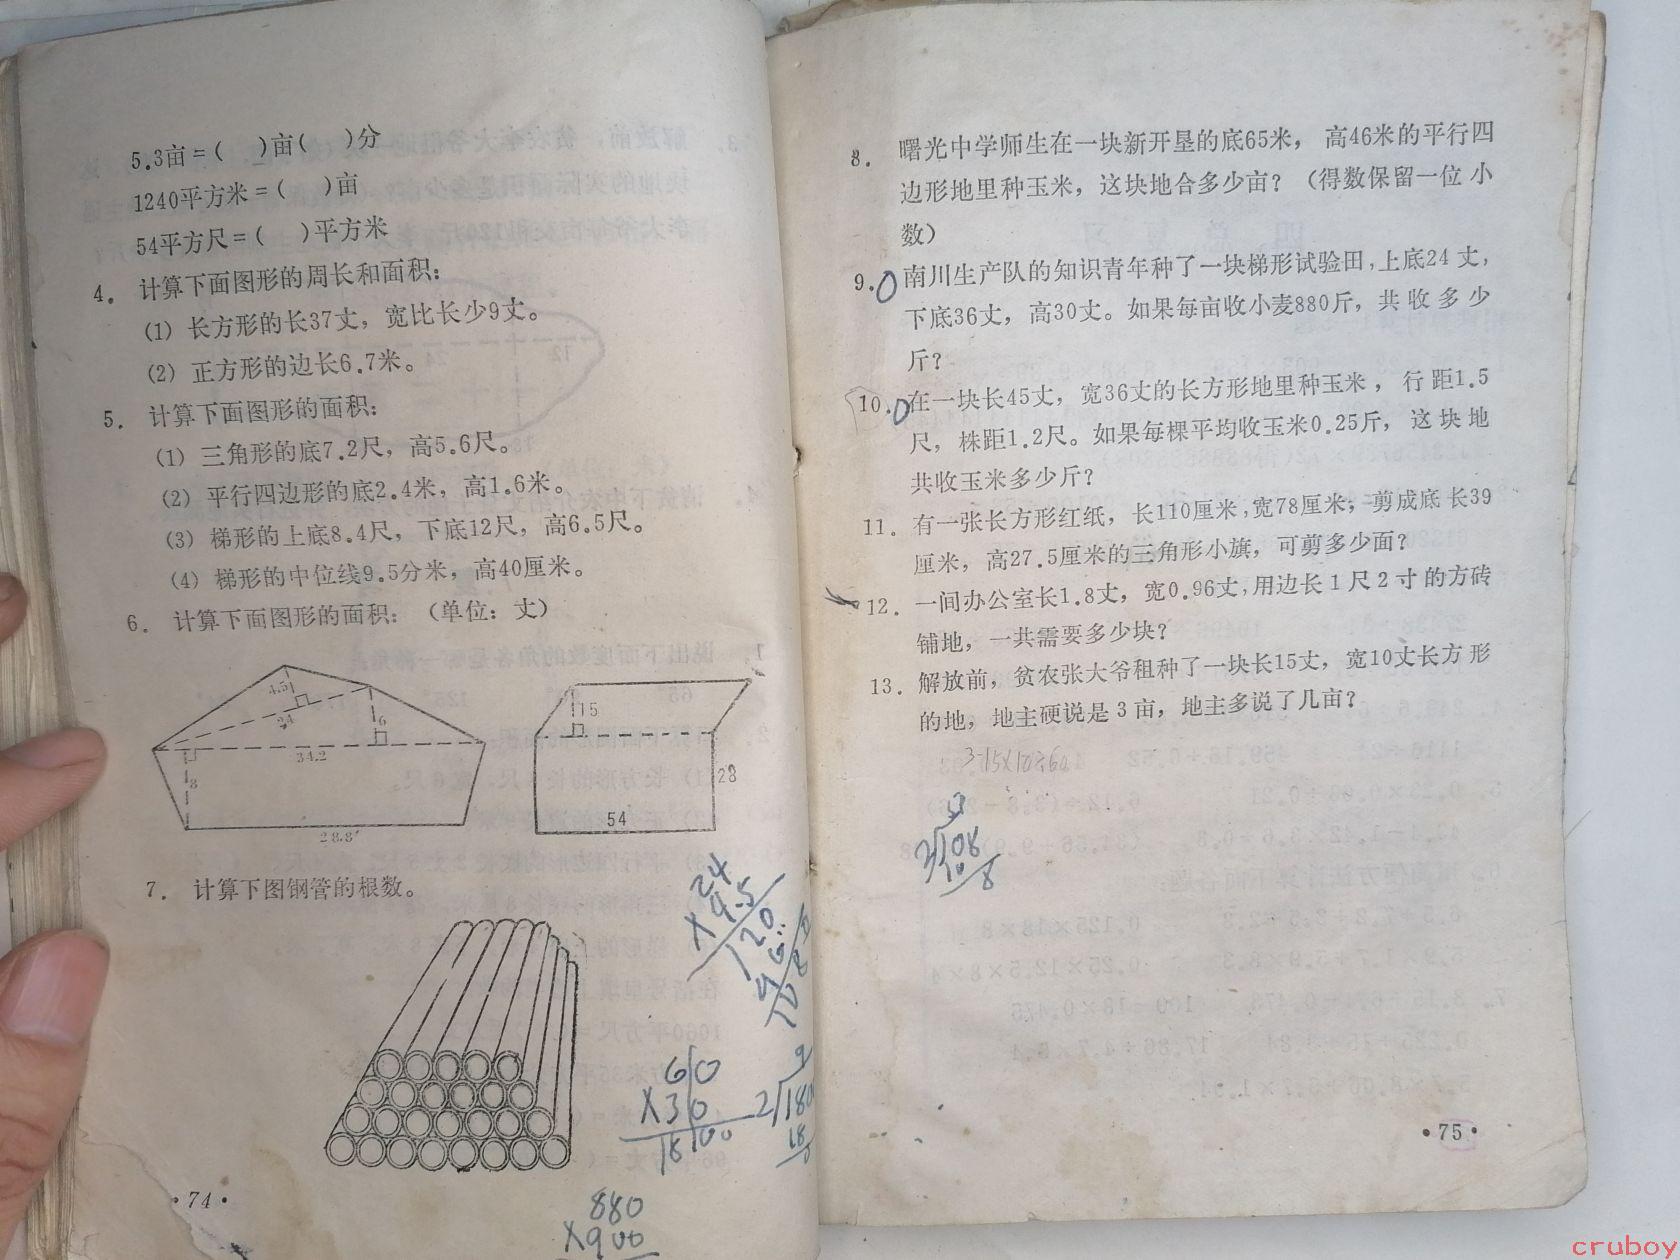 5.3亩=(　)亩(　)分
1240平方米=(　)亩
54平方尺=(　)平方米
4. 计算下面图形的周长和面积:
(1) 长方形的长37丈，宽比长少9丈。
(2) 正方形的边长6.7米。
5. 计算下面图形的面积:
(1) 三角形的底7.2尺，高5.6尺。
(2) 平行四边形的底2.4米，高1.6米。
(3) 梯形的上底8.4尺，下底12尺，高6.5尺。
(4) 梯形的中位线9.5分米，高40厘米。
6. 计算下面图形的面积: (单位: 丈)
4.5
24
6
34.2
8
28.8
15
28
54
7. 计算下图钢管的根数。
24
×4.5
120
60
×30
1800
2 180
18
880
×900
·74·
8. 曙光中学师生在一块新开垦的底65米，高46米的平行四
边形地里种玉米，这块地合多少亩? (得数保留一位小
数)
9. 南川生产队的知识青年种了一块梯形试验田，上底24丈，
下底36丈，高30丈。如果每亩收小麦880斤，共收多少
斤?
10. 在一块长45丈，宽36丈的长方形地里种玉米，行距1.5
尺，株距1.2尺。如果每棵平均收玉米0.25斤，这块地
共收玉米多少斤?
11. 有一张长方形红纸，长110厘米，宽78厘米，剪成底长39
厘米，高27.5厘米的三角形小旗，可剪多少面?
12. 一间办公室长1.8丈，宽0.96丈，用边长1尺2寸的方砖
铺地，一共需要多少块?
13. 解放前，贫农张大爷租种了一块长15丈，宽10丈长方形
的地，地主硬说是3亩，地主多说了几亩?
3-15×10÷60
2 108
10
8
·75·
cruboy